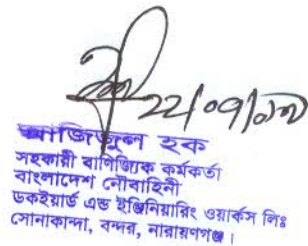 ২২/০৭/২০২০
আজিজুল হক
সহকারী বাণিজ্যিক কর্মকর্তা
বাংলাদেশ নৌবাহিনী
ডকইয়ার্ড এন্ড ইঞ্জিনিয়ারিং ওয়ার্কস লিঃ
সোনাকান্দা, বন্দর, নারায়ণগঞ্জ।